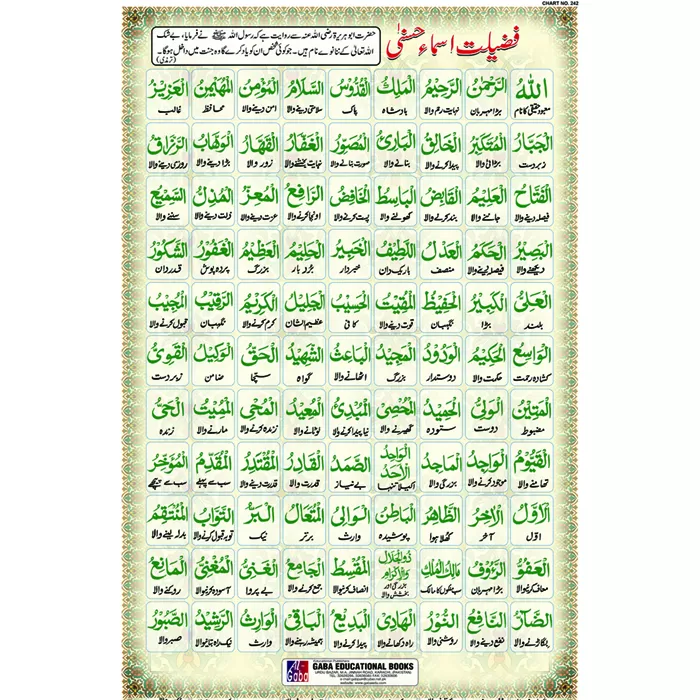 CHART NO. 242
فضیلت اسماء حسنیٰ
حضرت ابو ہریرۃ رضی اللہ عنہ سے روایت ہے کہ رسول اللہ ﷺ نے فرمایا، بے شک
اللہ تعالیٰ کے ننانوے نام ہیں۔ جو کوئی شخص ان کو یاد کرے گا وہ جنت میں داخل ہوگا۔
(ترمذی)
اَللهُ اَلرَّحْمٰنُ اَلرَّحِيْمُ اَلْمَلِكُ اَلْقُدُّوْسُ اَلسَّلَامُ اَلْمُؤْمِنُ اَلْمُهَيْمِنُ اَلْعَزِيْزُ
معبود حقیقی کا نام بڑا مہربان نہایت رحم والا بادشاہ پاک سلامتی دینے والا امن دینے والا محافظ غالب
اَلْجَبَّارُ اَلْمُتَكَبِّرُ اَلْخَالِقُ اَلْبَارِئُ اَلْمُصَوِّرُ اَلْغَفَّارُ اَلْقَهَّارُ اَلْوَهَّابُ اَلرَّزَّاقُ
زبردست بڑائی والا پیدا کرنے والا بنانے والا صورت بنانے والا نہایت بخشنے والا زور والا بڑا دینے والا روزی دینے والا
اَلْفَتَّاحُ اَلْعَلِيْمُ اَلْقَابِضُ اَلْبَاسِطُ اَلْخَافِضُ اَلرَّافِعُ اَلْمُعِزُّ اَلْمُذِلُّ اَلسَّمِيْعُ
فیصلہ دینے والا جاننے والا بند کرنے والا کھولنے والا پست کرنے والا اونچا کرنے والا عزت دینے والا ذلت دینے والا سننے والا
اَلْبَصِيْرُ اَلْحَكَمُ اَلْعَدْلُ اَللَّطِيْفُ اَلْخَبِيْرُ اَلْحَلِيْمُ اَلْعَظِيْمُ اَلْغَفُوْرُ اَلشَّكُوْرُ
دیکھنے والا فیصلہ دینے والا منصف باریک دان خبردار بردبار بزرگ پردہ پوش قدردان
اَلْعَلِىُّ اَلْكَبِيْرُ اَلْحَفِيْظُ اَلْمُقِيْتُ اَلْحَسِيْبُ اَلْجَلِيْلُ اَلْكَرِيْمُ اَلرَّقِيْبُ اَلْمُجِيْبُ
بلند بڑا نگہبان قوت دینے والا کافی عظیم الشان کرم کرنے والا نگہبان قبول کرنے والا
اَلْوَاسِعُ اَلْحَكِيْمُ اَلْوَدُوْدُ اَلْمَجِيْدُ اَلْبَاعِثُ اَلشَّهِيْدُ اَلْحَقُّ اَلْوَكِيْلُ اَلْقَوِىُّ
کشادہ رحمت حکمت والا دوستدار بزرگ اٹھانے والا گواہ سچا ضامن زبردست
اَلْمَتِيْنُ اَلْوَلِىُّ اَلْحَمِيْدُ اَلْمُحْصِىْ اَلْمُبْدِئُ اَلْمُعِيْدُ اَلْمُحْىِ اَلْمُمِيْتُ اَلْحَىُّ
مضبوط دوست ستودہ گھیرنے والا نیا پیدا کرنے والا لوٹانے والا زندہ کرنے والا مارنے والا زندہ
اَلْقَيُّوْمُ اَلْوَاجِدُ اَلْمَاجِدُ اَلْوَاحِدُ الْاَحَدُ اَلصَّمَدُ اَلْقَادِرُ اَلْمُقْتَدِرُ اَلْمُقَدِّمُ اَلْمُؤَخِّرُ
تھامنے والا موجود کرنے والا بزرگی والا اکیلا تنہا بے نیاز قدرت والا قدرت دینے والا سب سے پہلے سب سے پیچھے
اَلْاَوَّلُ اَلْاٰخِرُ اَلظَّاهِرُ اَلْبَاطِنُ اَلْوَالِىْ اَلْمُتَعَالُ اَلْبَرُّ اَلتَّوَّابُ اَلْمُنْتَقِمُ
اوّل آخر کھلا ہوا پوشیدہ وارث برتر نیک توبہ قبول کرنے والا بدلہ لینے والا
اَلْعَفُوُّ اَلرَّؤُفُ مَالِكُ الْمُلْكِ ذُوالْجَلَالِ وَالْاِكْرَامِ اَلْمُقْسِطُ اَلْجَامِعُ اَلْغَنِىُّ اَلْمُغْنِىُّ اَلْمَانِعُ
معاف کرنیوالا بڑا مہربان سب ملکوں کا مالک بزرگی اور بخشش والا انصاف کرنیوالا جمع کرنے والا بے پروا آسودہ کرنیوالا روکنے والا
اَلضَّآرُّ اَلنَّافِعُ اَلنُّوْرُ اَلْهَادِىْ اَلْبَدِيْعُ اَلْبَاقِىْ اَلْوَارِثُ اَلرَّشِيْدُ اَلصَّبُوْرُ
بگاڑنے والا نفع دینے والا روشنی والا راہ دکھانے والا پیدا کرنے والا ہمیشہ رہنے والا وارث نیک راہ بتانیوالا صبر والا
Gaba
Educational Publishers
GABA EDUCATIONAL BOOKS
URDU BAZAR, M.A. JINNAH ROAD, KARACHI (PAKISTAN)